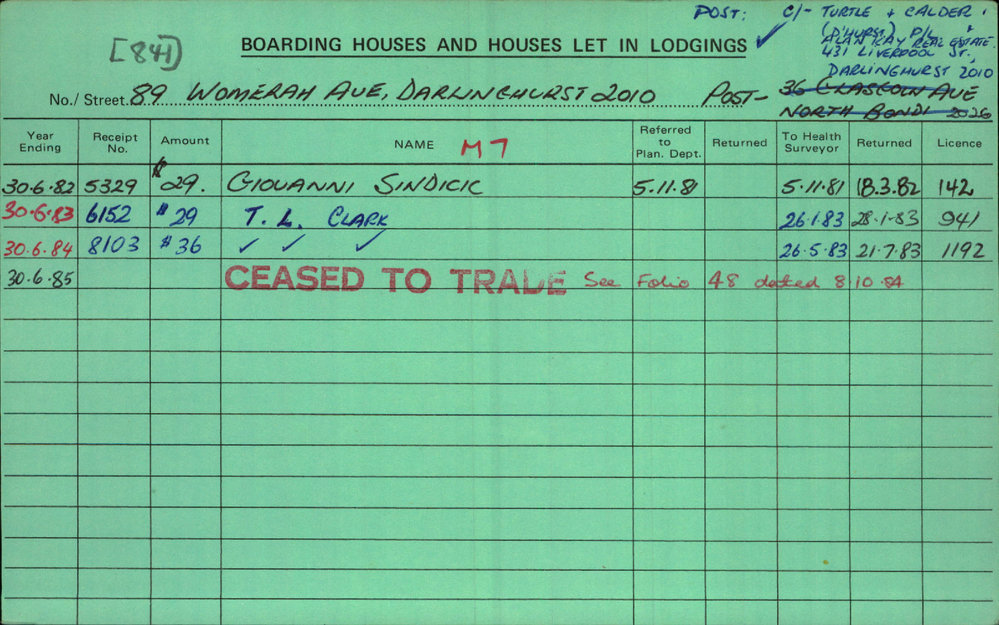 POST: C/- TURTLE + CALDER
(D'HURST) P/L
ALAN KAY REAL ESTATE
431 LIVERPOOL ST.,
DARLINGHURST 2010
[841]
BOARDING HOUSES AND HOUSES LET IN LODGINGS ✓
No./ Street. 89 WOMERAH AVE, DARLINGHURST 2010 POST- 36 AVE
NORTH BONDI 2026
Year Ending Receipt No. Amount NAME M7 Referred to Plan. Dept. Returned To Health Surveyor Returned Licence
30.6.82 5329 $29. GIOVANNI SINDICIC 5.11.81 5.11.81 18.3.82 142
30.6.83 6152 $29 T. L. CLARK 26.1.83 28.1.83 941
30.6.84 8103 $36 ✓ ✓ ✓ 26.5.83 21.7.83 1192
30.6.85 CEASED TO TRADE See Folio 48 dated 8.10.84